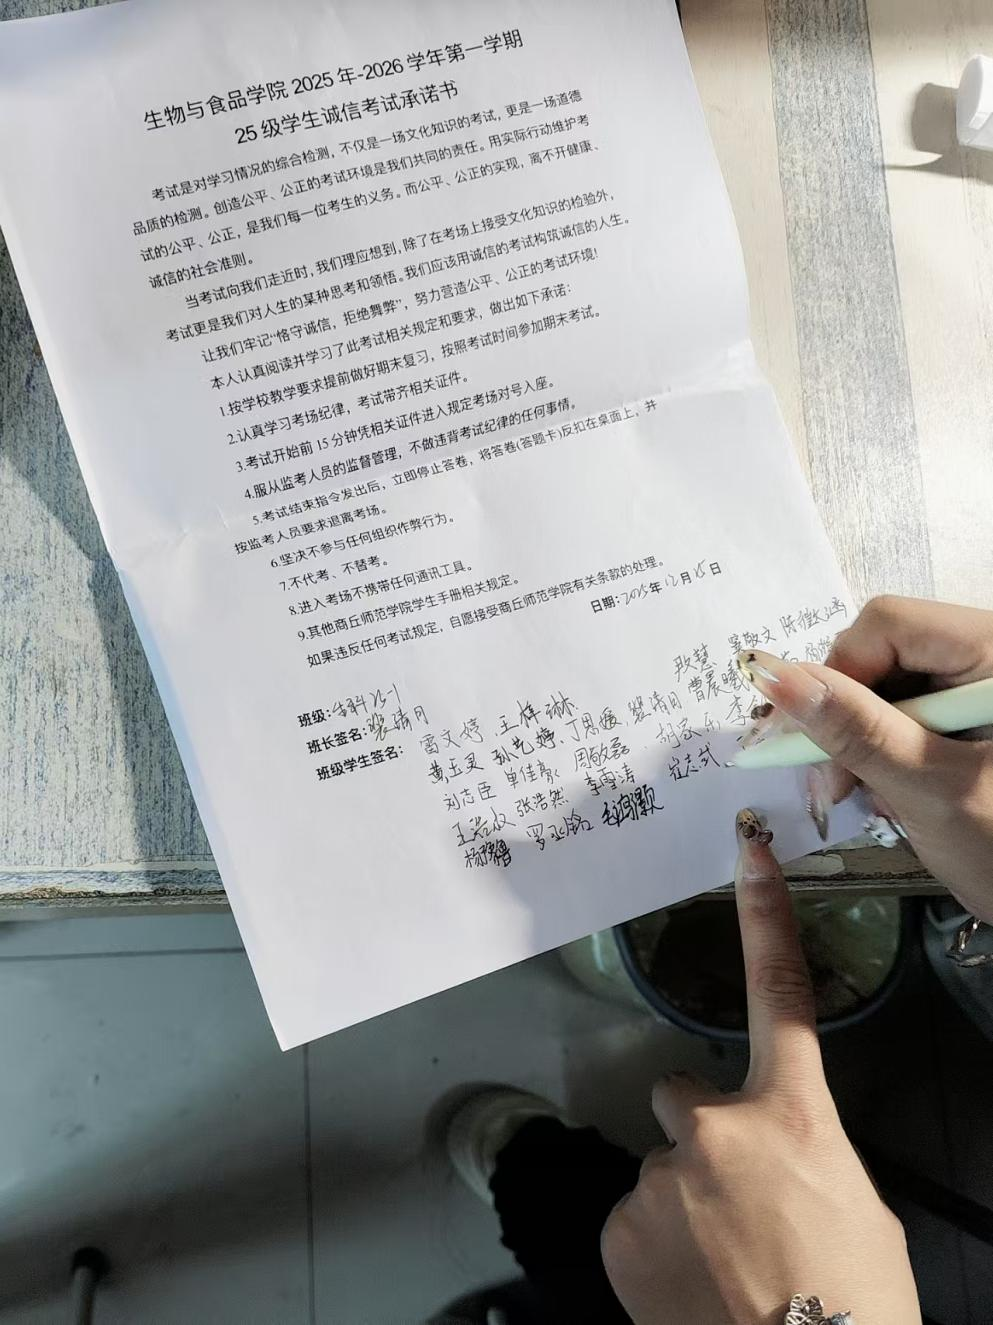 生物与食品学院 2025 年-2026 学年第一学期
25 级学生诚信考试承诺书
考试是对学习情况的综合检测，不仅是一场文化知识的考试，更是一场道德
品质的检测。创造公平、公正的考试环境是我们共同的责任。用实际行动维护考
试的公平、公正，是我们每一位考生的义务。而公平、公正的实现，离不开健康、
诚信的社会准则。
当考试向我们走近时，我们理应想到，除了在考场上接受文化知识的检验外，
考试更是我们对人生的某种思考和领悟。我们应该用诚信的考试构筑诚信的人生。
让我们牢记“恪守诚信，拒绝舞弊”，努力营造公平、公正的考试环境!
本人认真阅读并学习了此考试相关规定和要求，做出如下承诺：
1.按学校教学要求提前做好期末复习，按照考试时间参加期末考试。
2.认真学习考场纪律，考试带齐相关证件。
3.考试开始前 15 分钟凭相关证件进入规定考场对号入座。
4.服从监考人员的监督管理，不做违背考试纪律的任何事情。
5.考试结束指令发出后，立即停止答卷，将答卷(答题卡)反扣在桌面上，并
按监考人员要求退离考场。
6.坚决不参与任何组织作弊行为。
7.不代考、不替考。
8.进入考场不携带任何通讯工具。
9.其他商丘师范学院学生手册相关规定。
如果违反任何考试规定，自愿接受商丘师范学院有关条款的处理。
日期：2025年 12月 15日
班级：25-1
班长签名：张婧月
班级学生签名： 雷文婷 王梓琳 段慧 敬文
黄玉灵 孙艺婷 丁思媛 婧月 曾晨曦
刘志臣 单佳豪 周敬磊 胡家乐 李
王若权 张浩然 李雪涛 崔志武
杨 罗亚铭 毛鸿颢